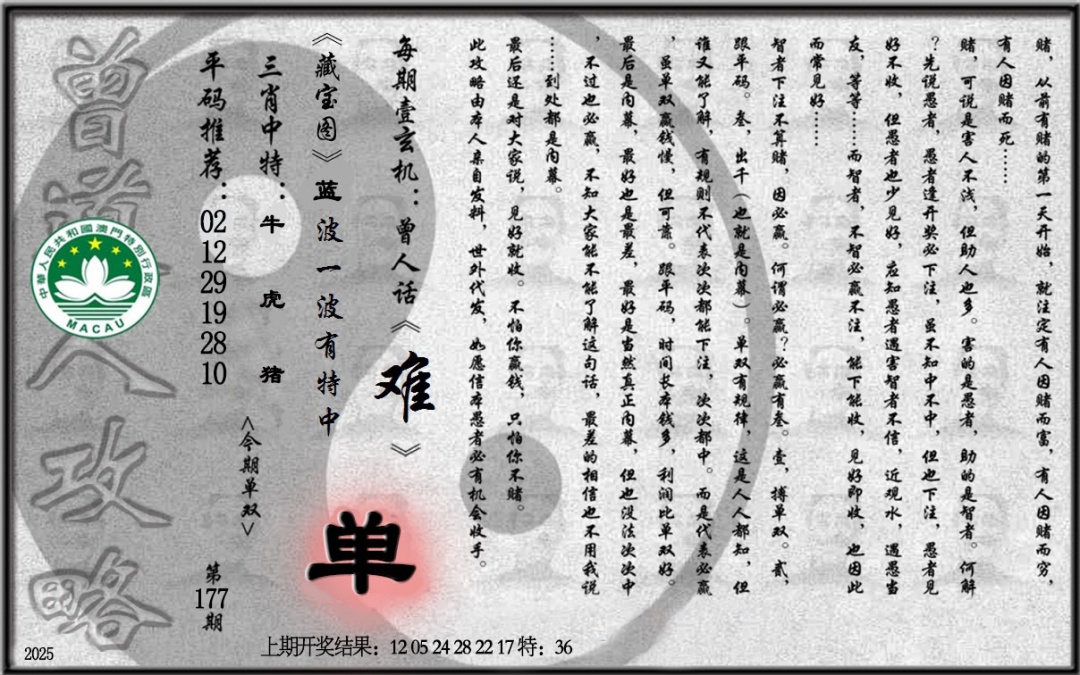 赌，从前有赌的第一天开始，就注定有人因赌而富，有人因赌而穷，
有人因赌而死……
赌，可说是害人不浅，但助人也多。害的是愚者，助的是智者。何解
？先说愚者，愚者逢开奖必下注，虽不知中不中，但也下注，愚者见
好不收，但愚者也少见好，应知愚者遇害智者不信，近观水，遇愚当
友，等等……而智者，不智必赢不注，能下能收，见好即收，也因此
而常见好……
智者下注不算赌，因必赢。何谓必赢？必赢有叁。壹，搏单双。贰，
跟平码。叁，出千（也就是内幕）。单双有规律，这是人人都知，但
谁又能了解，有规则不代表次次都能下注，次次都中。而是代表必赢
，虽单双赢钱慢，但可靠。跟平码，时间长本钱多，利润比单双好。
最后是内幕，最好也是最差，最好是当然真正内幕，但也没法次次中
，不过也必赢，不知大家能不能了解这句话，最差的相信也不用我说
……到处都是内幕。
最后还是对大家说，见好就收。不怕你赢钱，只怕你不赌。
此攻略由本人亲自发料，世外代发，如愿信本愚者必有机会收手。
每期壹玄机：曾人话《难》
《藏宝图》蓝波一波有特中
三肖中特：牛 虎 猪
平码推荐：02 12 29 19 28 10
<今期单双>
单
第177期
曾道人攻略
中華人民共和國澳門特別行政區
MACAU
2025
上期开奖结果：12 05 24 28 22 17 特：36